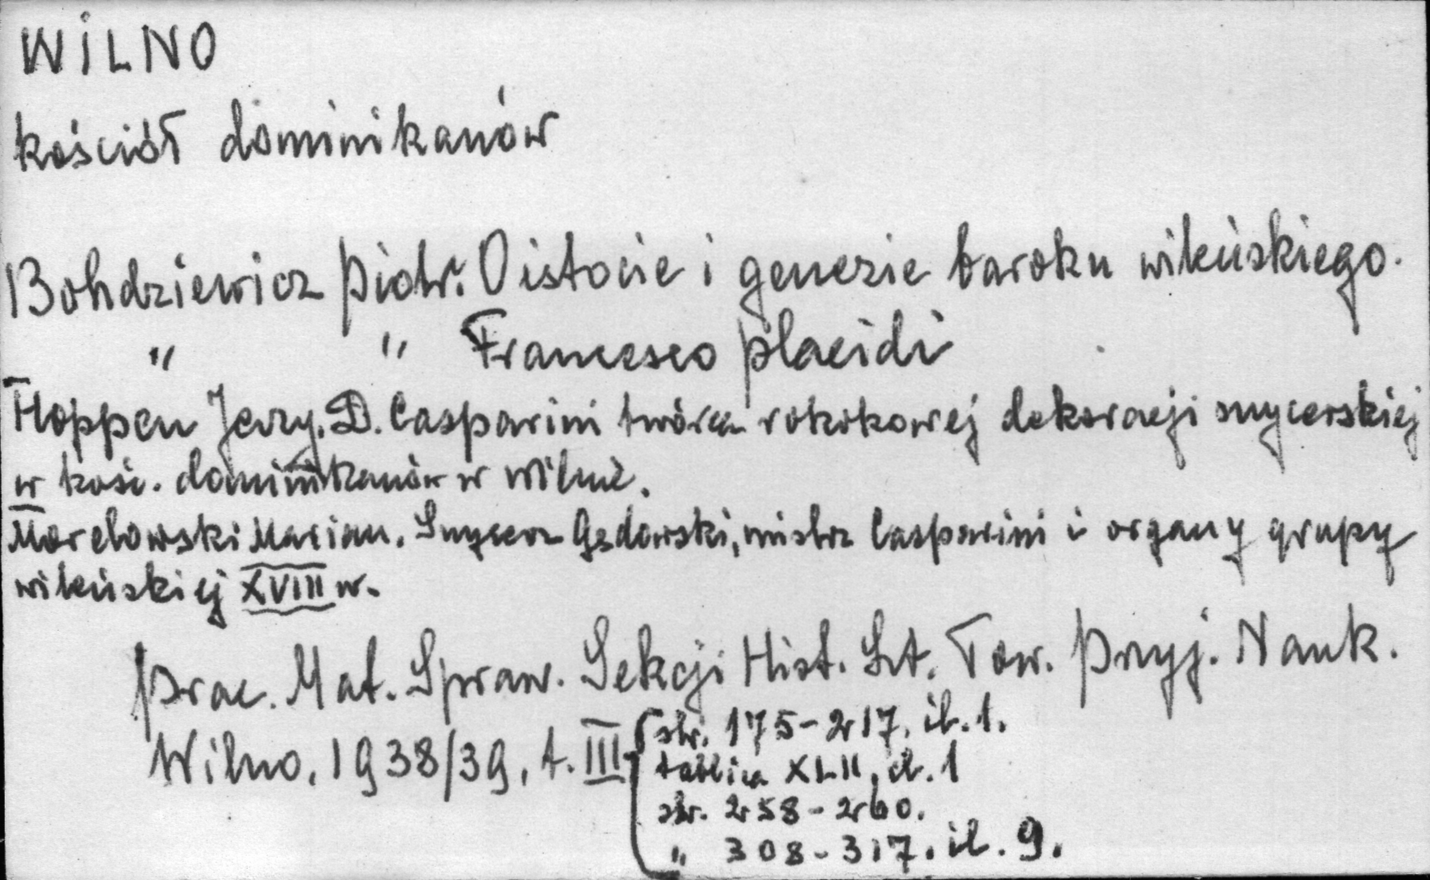 WILNO
kościół dominikanów
Bohdziewicz Piotr. O istocie i genezie baroku wileńskiego.
" " Francesco Placidi
Hoppen Jerzy. D. Casparini twórca rokokowej dekoracji snycerskiej
w kość. dominikanów w Wilnie.
Morelowski Marian. Snycerz Gedowski, mistrz Casparini i organy grupy
wileńskiej XVIII w.
Prac. Mat. Spraw. Sekcji Hist. Szt. Tow. Przyj. Nauk.
Wilno, 1938/39, t. III
str. 175-217. il. 1.
tablica XLII, il. 1
str. 258-260.
" 308-317. il. 9.